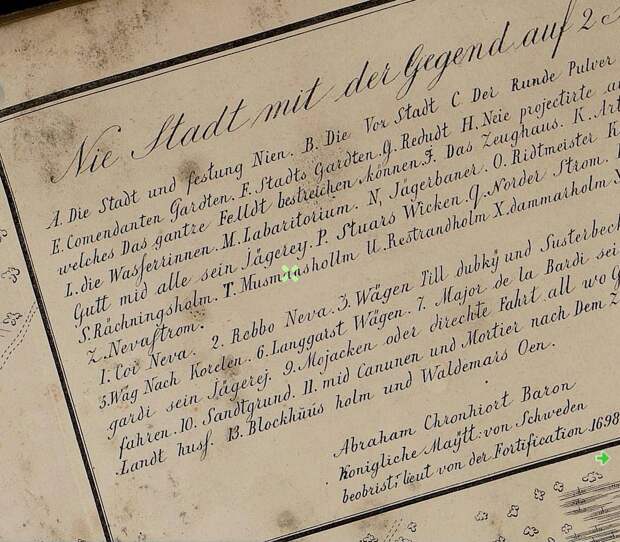 Nie Stadt mit der Gegend auf 2
A. Die Stadt und festung Nien. B. Die Vor Stadt C Der Runde Pulver
E. Comendanten Gardten. F. Stadts Gardten. G. Redudt H. Neie projectirte
welches Das gantze Felldt bestreichen können. J. Das Zeughaus. K. Art
L. die Wasserrinnen. M. Labaritorium. N, Jägerbaner. O. Ridtmeister K
Gutt mid alle sein Jägerey. P. Stuars Wicken. Q. Norder Strom.
S. Rächningsholm. T. Musmanshollm U. Restrandholm X. dammarholm
Z. Nevastrom.
1. Coi Neva. 2. Rebbo Neva. 3. Wägen Till dubky und Susterbeck
5. Wäg Nach Korelen. 6. Langgarst Wägen. 7. Major de la Bardi sei
gardi sein Jägerej. 9. Mojacken oder directe Fahrt all wo G
fahren. 10. Sandtgrund. 11. mid Canunen und Mortier nach Dem Z
Landt husf. 13. Blockhüüs holm und Waldemars Oen.
Abraham Chronhiort Baron
Konigliche Maÿtt: von Schweden
beobrist: lieut von der Fortification 1698